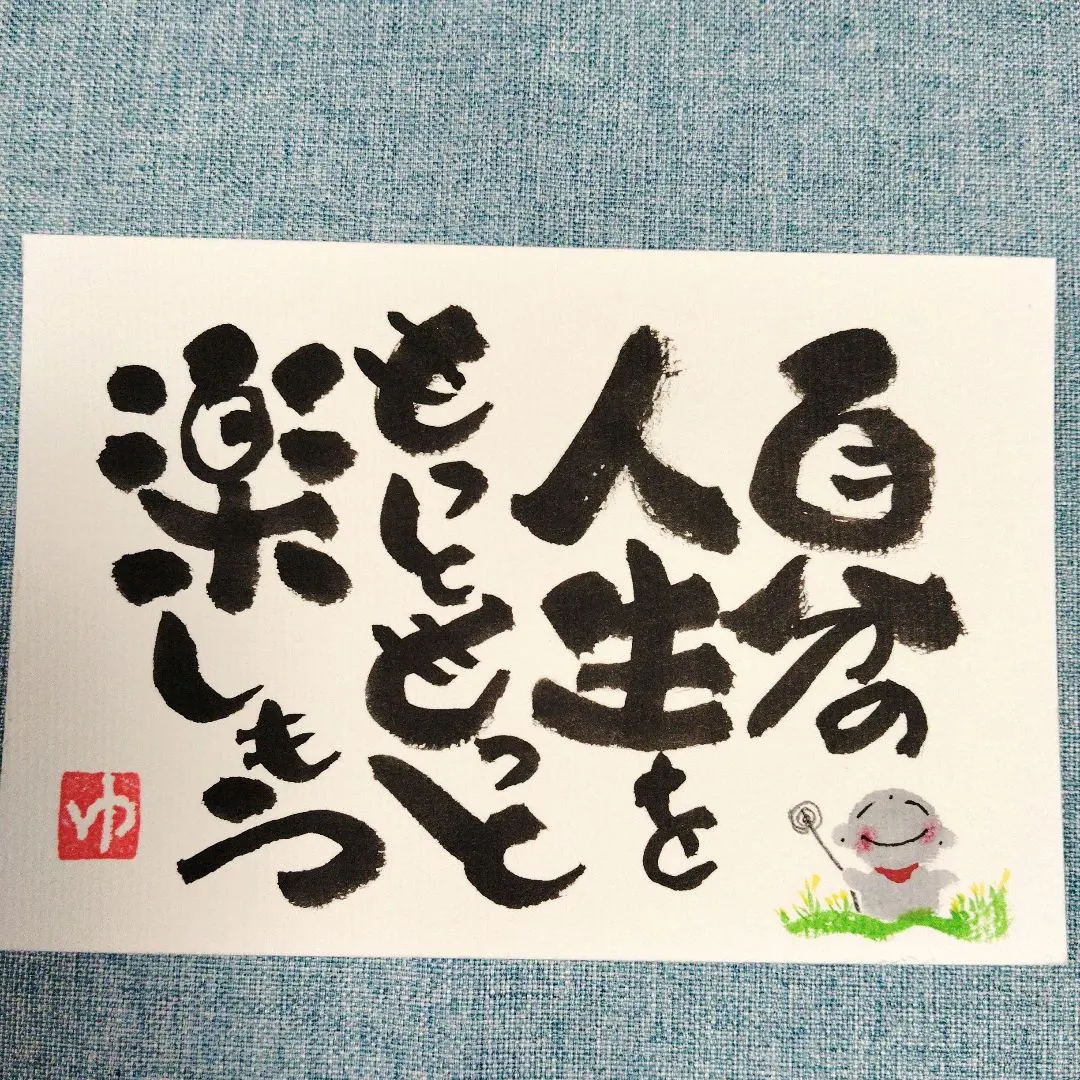 自分の
人生を
もっと もっと
楽しもう
ゆ